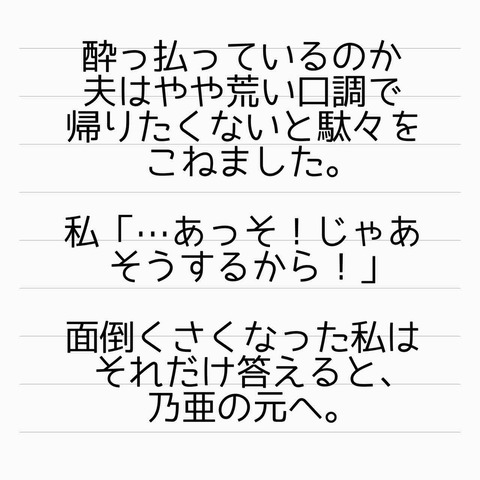 酔っ払っているのか
夫はやや荒い口調で
帰りたくないと駄々を
こねました。
私「…あっそ！じゃあ
そうするから！」
面倒くさくなった私は
それだけ答えると、
乃亜の元へ。